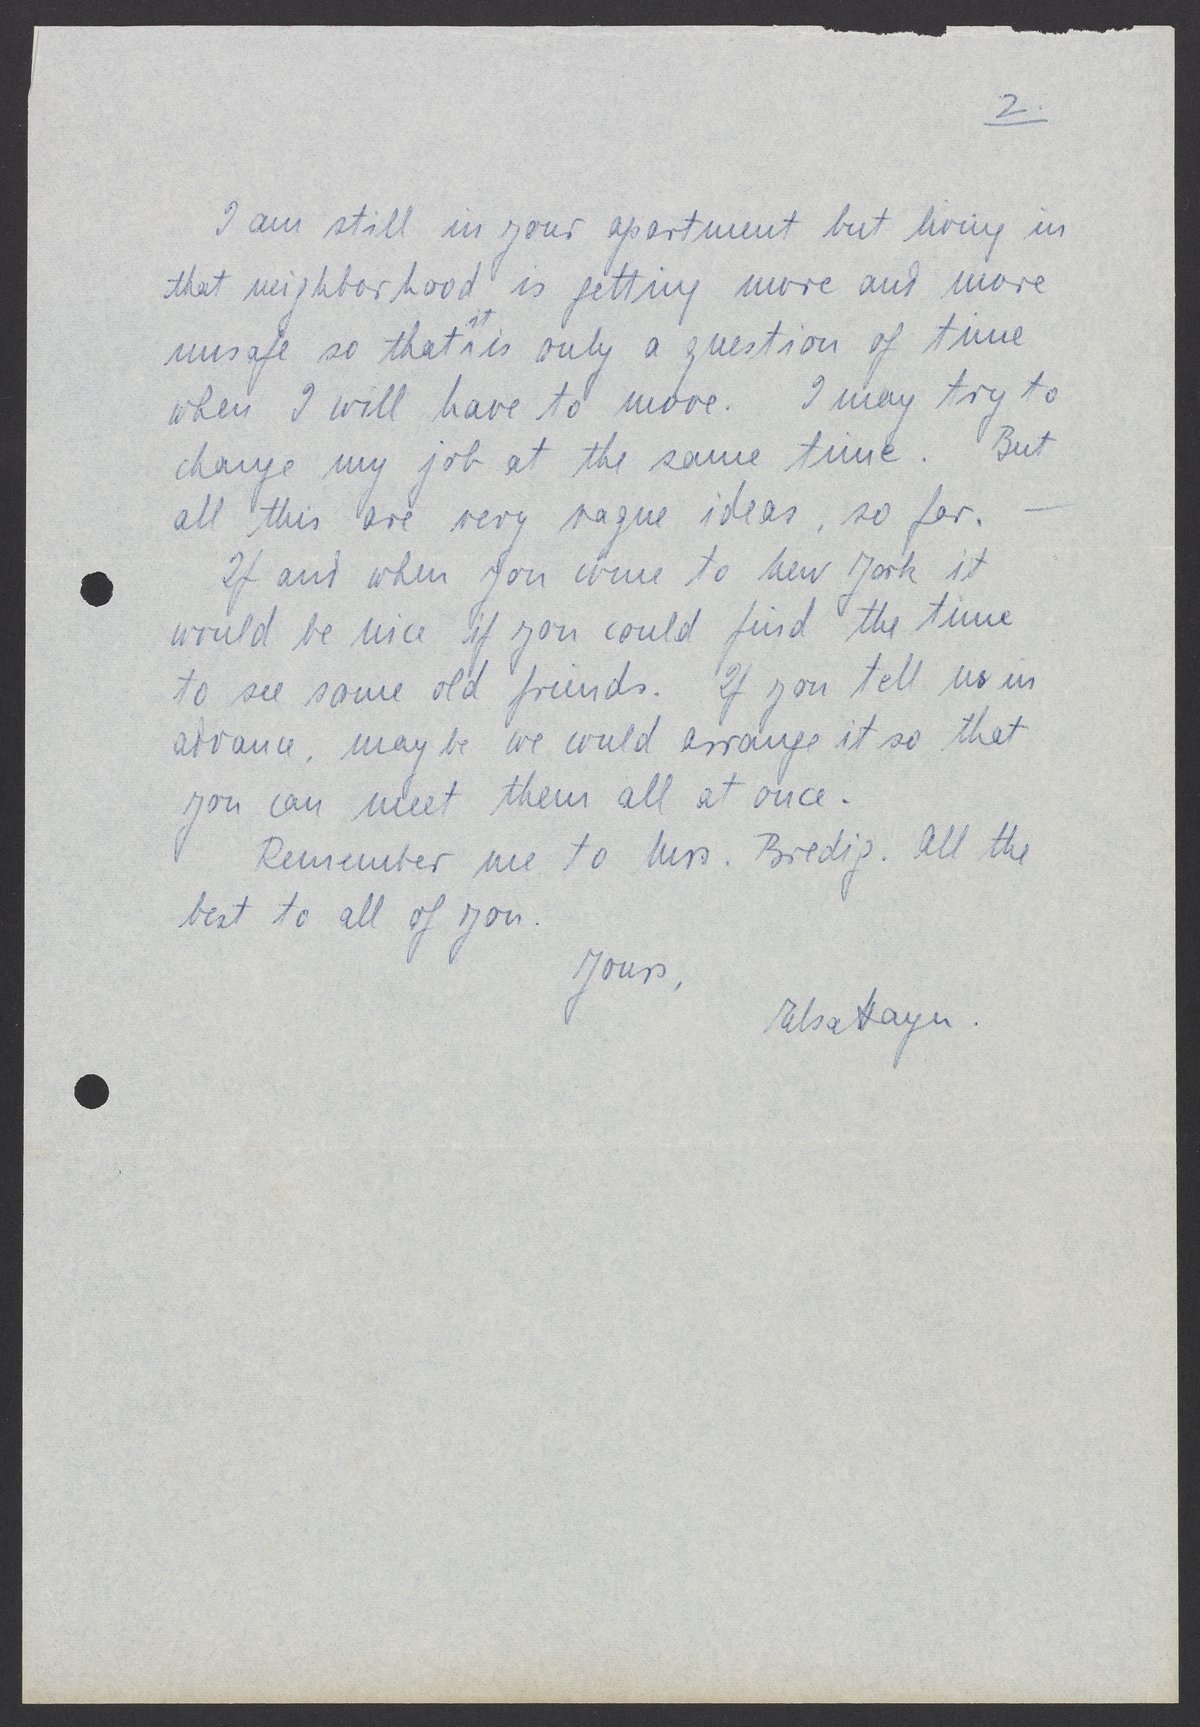 2.
I am still in your apartment but living in
that neighborhood is getting more and more
unsafe so that it is only a question of time
when I will have to move. I may try to
change my job at the same time. But
all this are very vague ideas, so far. —
If and when you come to New York it
would be nice if you could find the time
to see some old friends. If you tell us in
advance, maybe we could arrange it so that
you can meet them all at once.
Remember me to Mrs. Bredig. All the
best to all of you.
Yours,
Elsa Hayn.